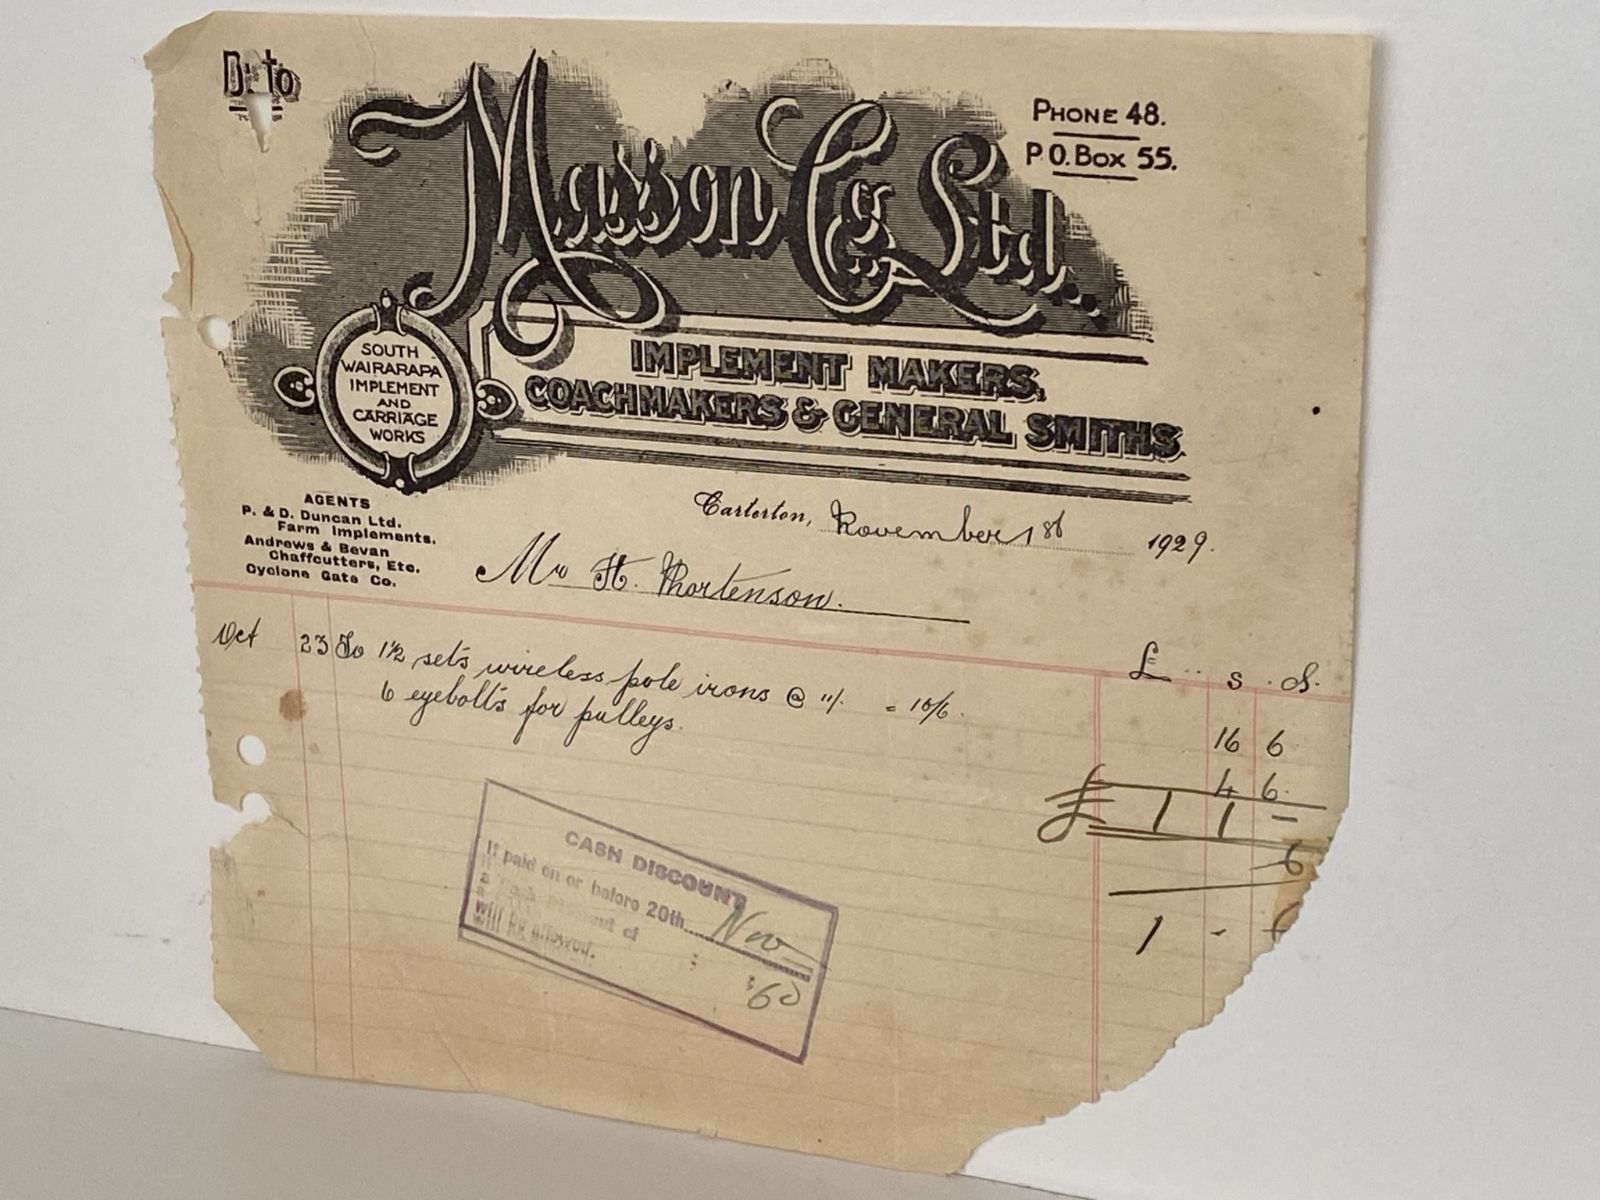 Dr. to
Masson Co. Ltd.
PHONE 48.
P.O. BOX 55.
IMPLEMENT MAKERS,
COACHMAKERS & GENERAL SMITHS.
SOUTH
WAIRARAPA
IMPLEMENT
AND
CARRIAGE
WORKS
AGENTS
P. & D. Duncan Ltd.
Farm Implements.
Andrews & Bevan
Chaffcutters, Etc.
Cyclone Gate Co.
Carterton, November 1st 1929.
Mr H. Mortenson.
£ s d.
Oct 23 To 1½ sets wireless pole irons @ 11/. = 16/6. 16 6
6 eyebolts for pulleys. 4 6.
£ 1 1 -
6
1 -
CASH DISCOUNT
If paid on or before 20th Nov
a
will be allowed.